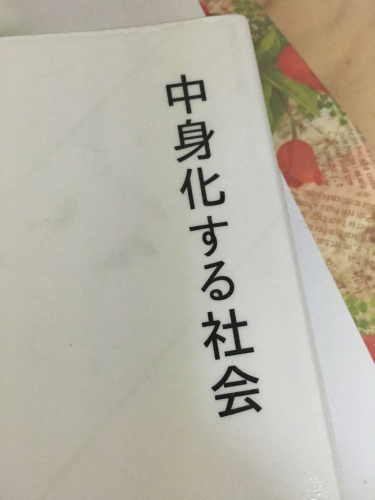 中身化する社会